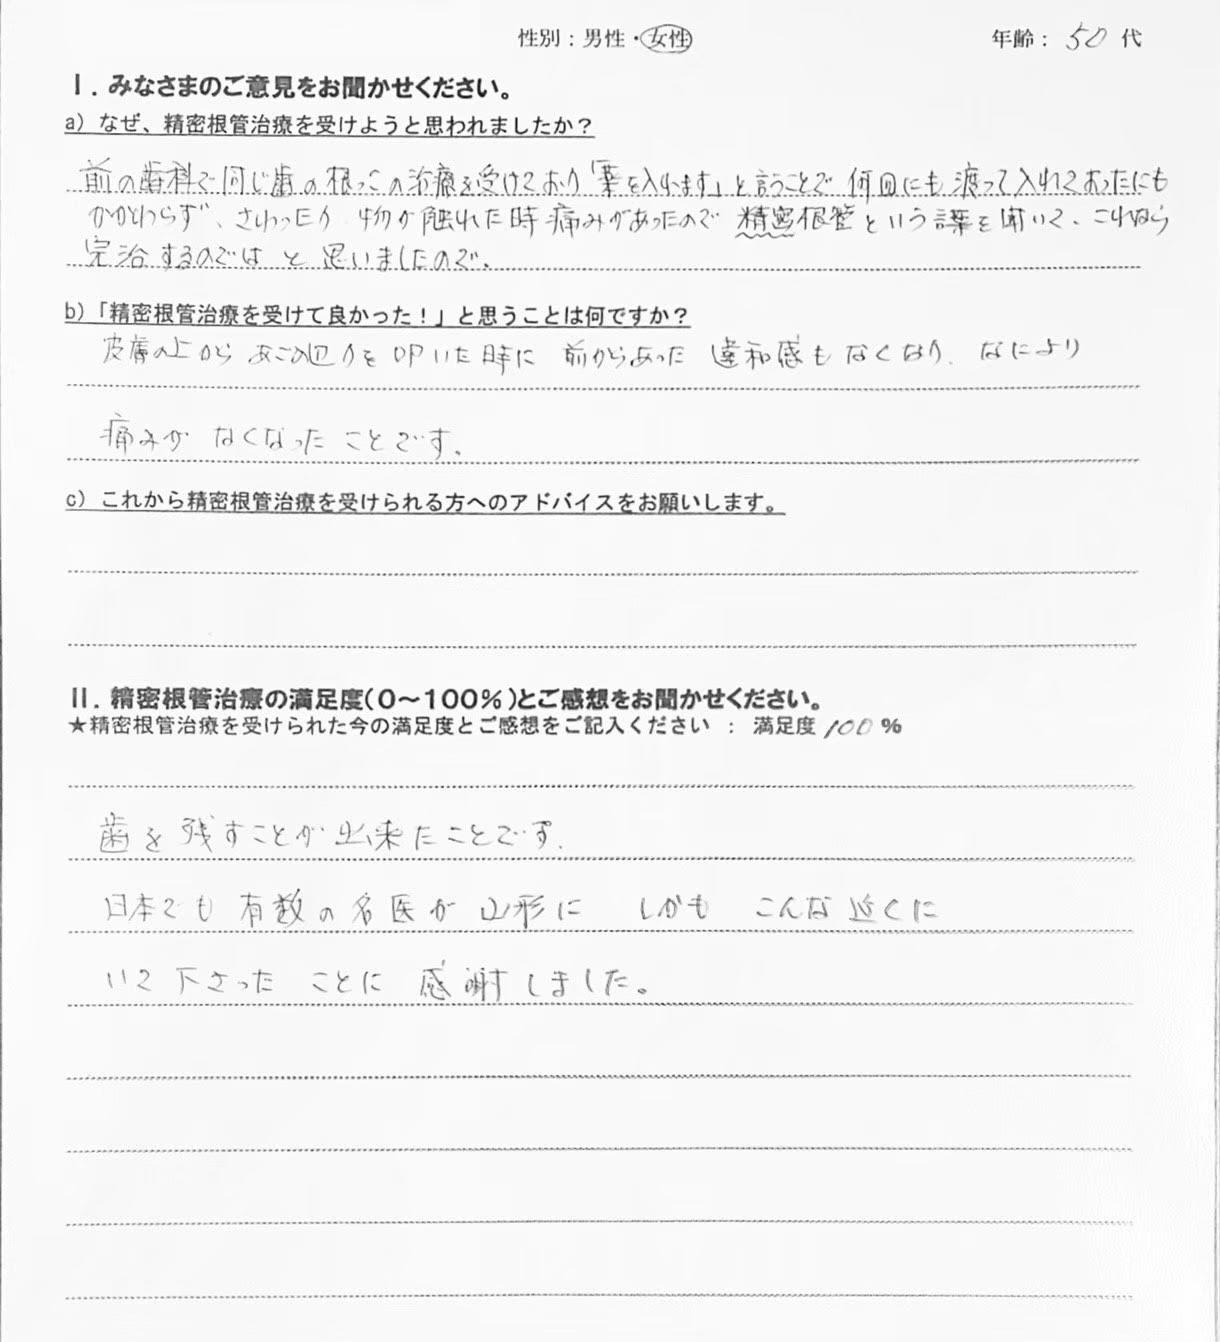 性別：男性・女性 年齢：50代
Ⅰ．みなさまのご意見をお聞かせください。
a）なぜ、精密根管治療を受けようと思われましたか？
前の歯科で同じ歯の根っこの治療を受けており「薬を入れます」と言うことで何回にも渡って入れておったにも
かかわらず、さわったり 物が触れた時痛みがあったので 精密根管という言葉を聞いて、これなら
完治するのではと思いましたので。
b）「精密根管治療を受けて良かった！」と思うことは何ですか？
皮膚の上からあごの辺りを叩いた時に 前からあった 違和感もなくなり、なにより
痛みが なくなった ことです。
c）これから精密根管治療を受けられる方へのアドバイスをお願いします。
Ⅱ．精密根管治療の満足度（0～100％）とご感想をお聞かせください。
★精密根管治療を受けられた今の満足度とご感想をご記入ください ： 満足度 100 ％
歯を残すことが出来たことです。
日本でも有数の名医が山形に しかも こんな近くに
いて下さった ことに 感謝しました。